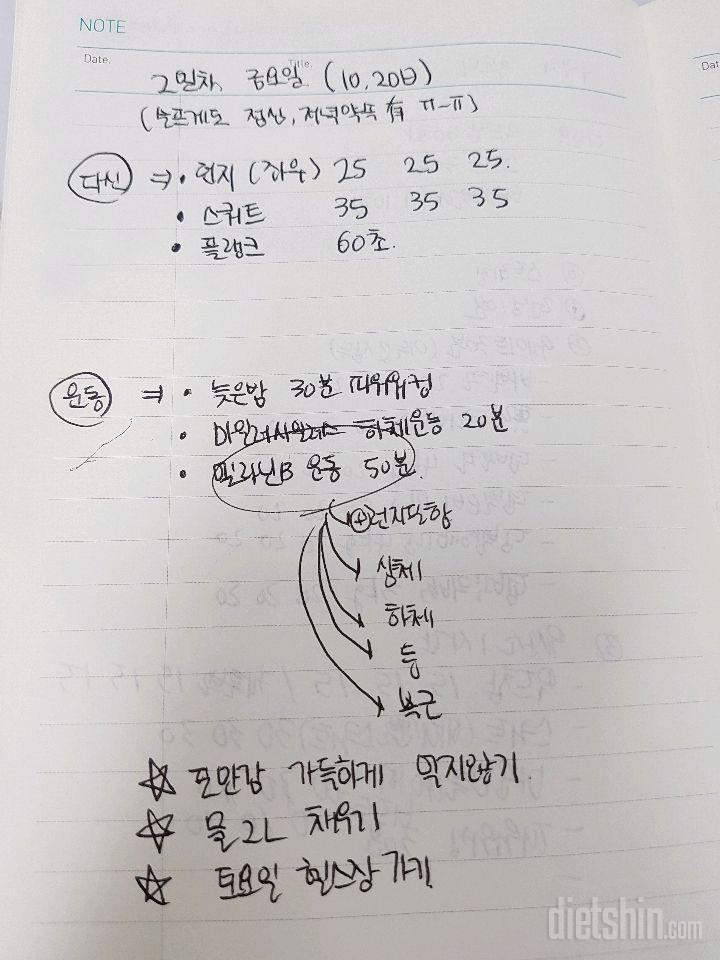 NOTE
Date.
Title.
2일차. 금요일 (10.20日)
(슬프게도 점심, 저녁약속 有 ㅠ-ㅠ)
다신 ⇒ • 런지 (좌우) 25 25 25.
• 스쿼트 35 35 35
• 플랭크 60초.
운동 ⇒ • 늦은밤 30분 파워워킹
• 마일리사일러스 하체운동 20분
• 빌리닌B 운동 50분.
⊕런지포함
상체
하체
등
복근
☆ 포만감 가득하게 먹지않기.
☆ 물 2L 채우기
☆ 토요일 헬스장 가기
Dat
dietshin.com